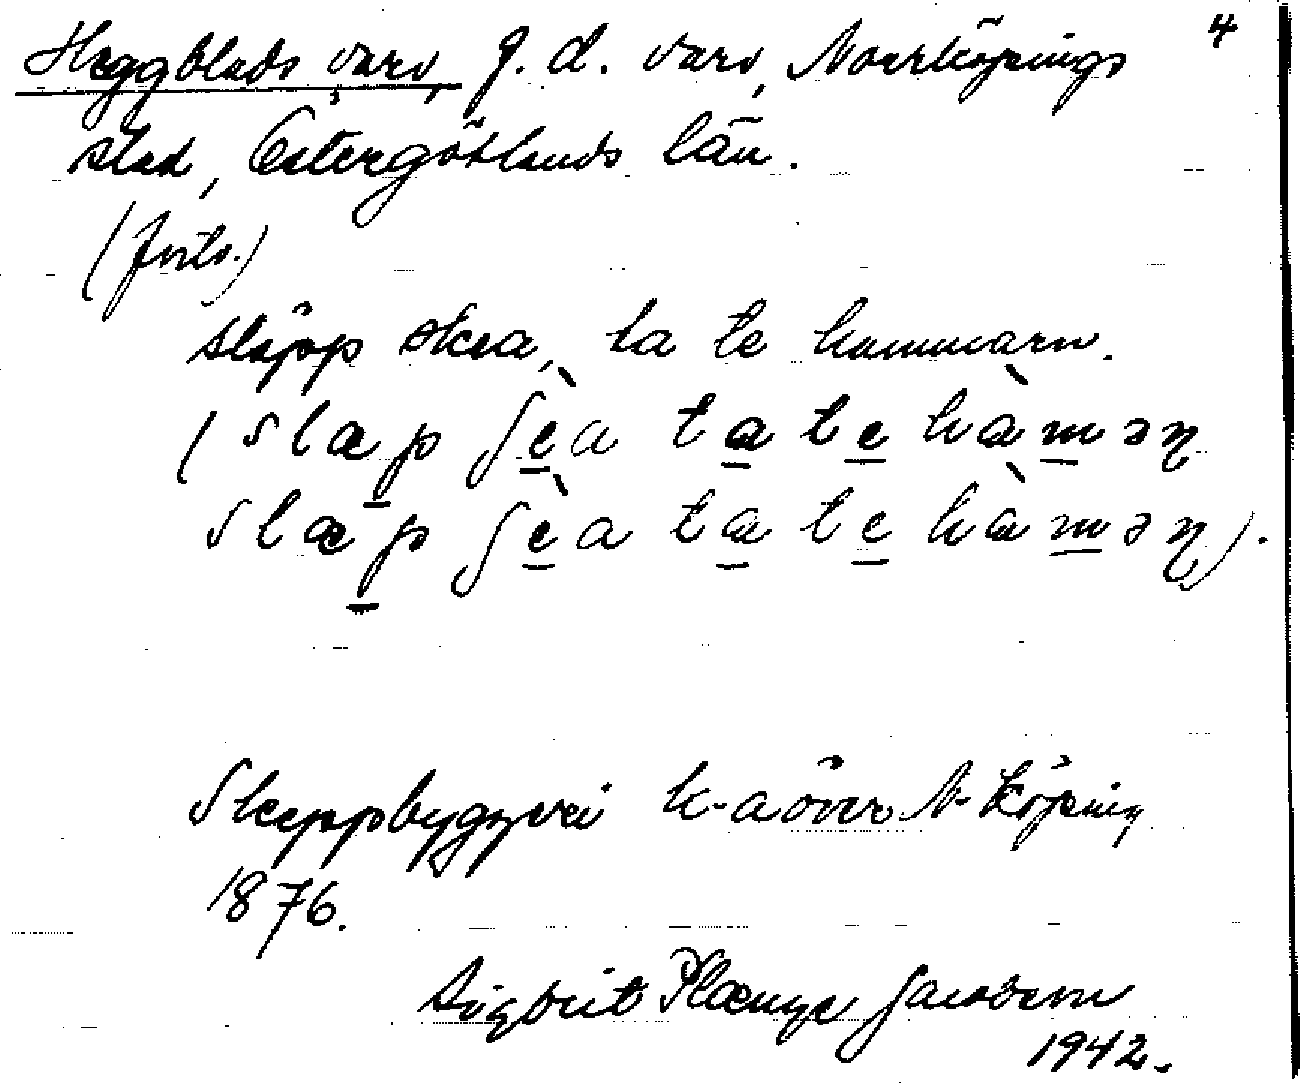 4
Heggblads varv, f. d. varv, Norrköpings
stad, Östergötlands län.
(forts.)
släpp skea, ta te hammarn.
(slæp ʃèa ta te hàməɳ
slæp ʃèa ta te hàməɳ).
Skeppbyggeri k-a över N-köping
1876.
Sigbrit Plænge Jacobson
1942.